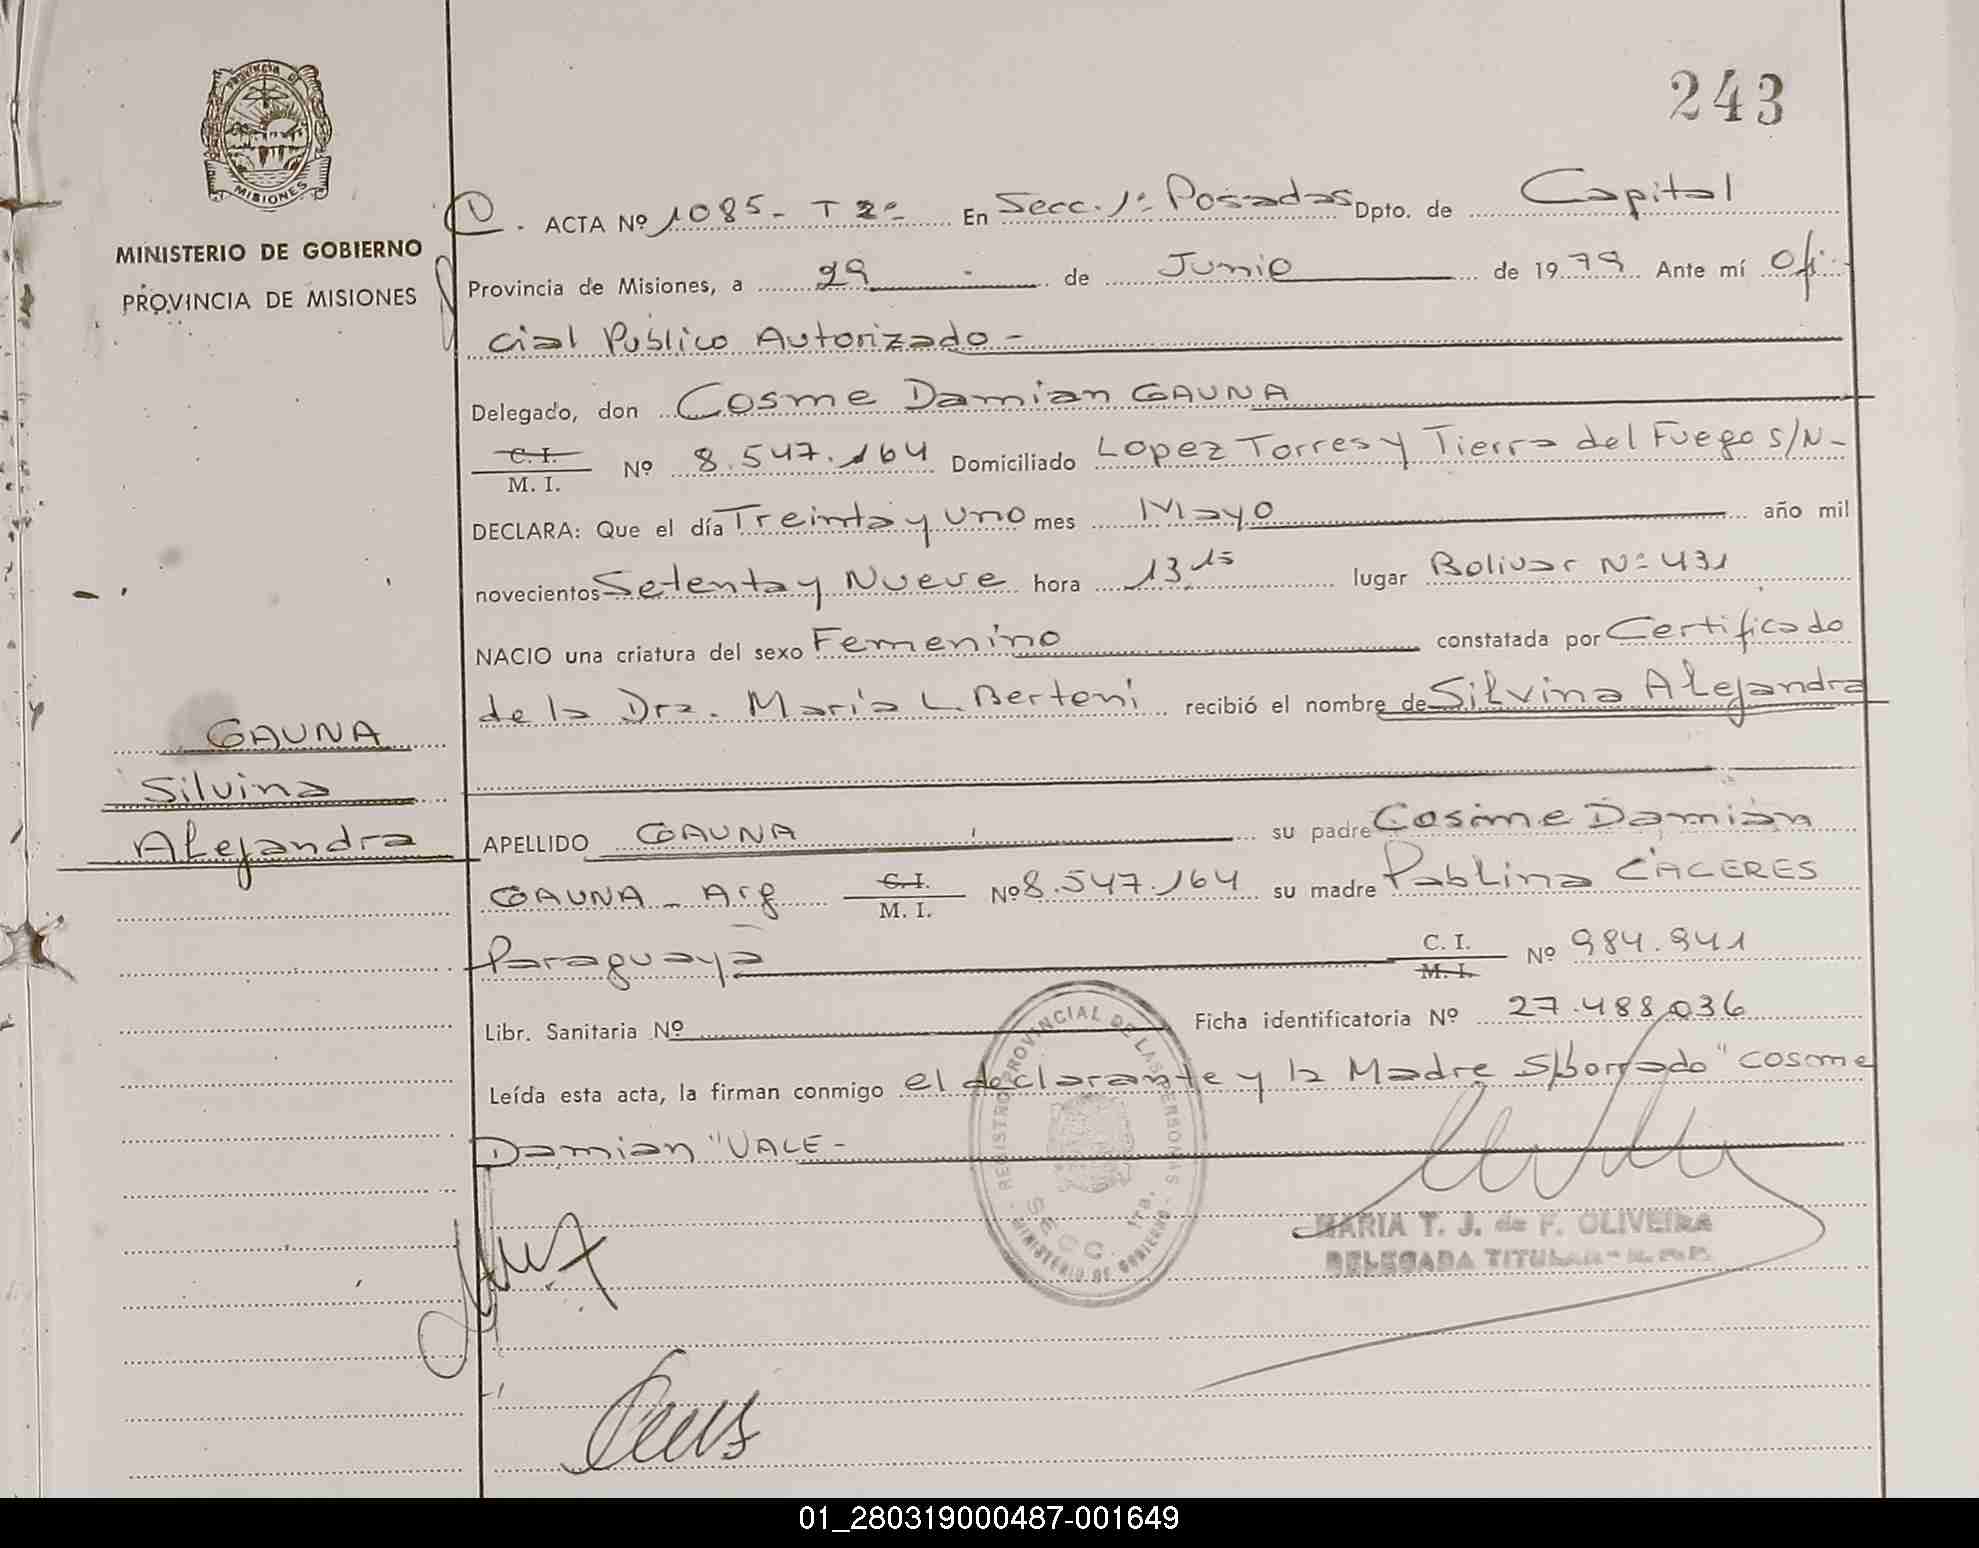 243
PROVINCIA DE
MISIONES
MINISTERIO DE GOBIERNO
PROVINCIA DE MISIONES
ACTA Nº 1085 - T 2º - En Secc. 1ª Posadas Dpto. de Capital
Provincia de Misiones, a 29 de Junio de 1979 Ante mí Ofi-
cial Publico Autorizado -
Delegado, don Cosme Damian GAUNA
C. I.
M. I. Nº 8.547.164 Domiciliado Lopez Torres y Tierra del Fuego S/N -
DECLARA: Que el día Treinta y uno mes Mayo año mil
novecientos Setenta y Nueve hora 13,15 lugar Bolivar Nº 431
NACIO una criatura del sexo Femenino constatada por Certificado
de la Dra. Maria L. Bertoni recibió el nombre de Silvina Alejandra
GAUNA
Silvina
Alejandra
APELLIDO GAUNA su padre Cosme Damián
GAUNA - Arg C. I.
M. I. Nº 8.547.164 su madre Pablina CÁCERES
Paraguaya C. I.
M. I. Nº 984.941
Libr. Sanitaria Nº Ficha identificatoria Nº 27.488.036
Leída esta acta, la firman conmigo el declarante y la Madre S/borrado "Cosme
Damian" VALE -
REGISTRO PROVINCIAL DE LAS PERSONAS
SECC. 1ra.
MINISTERIO DE GOBIERNO
MARIA T. J. de F. OLIVEIRA
DELEGADA TITULAR
01_280319000487-001649